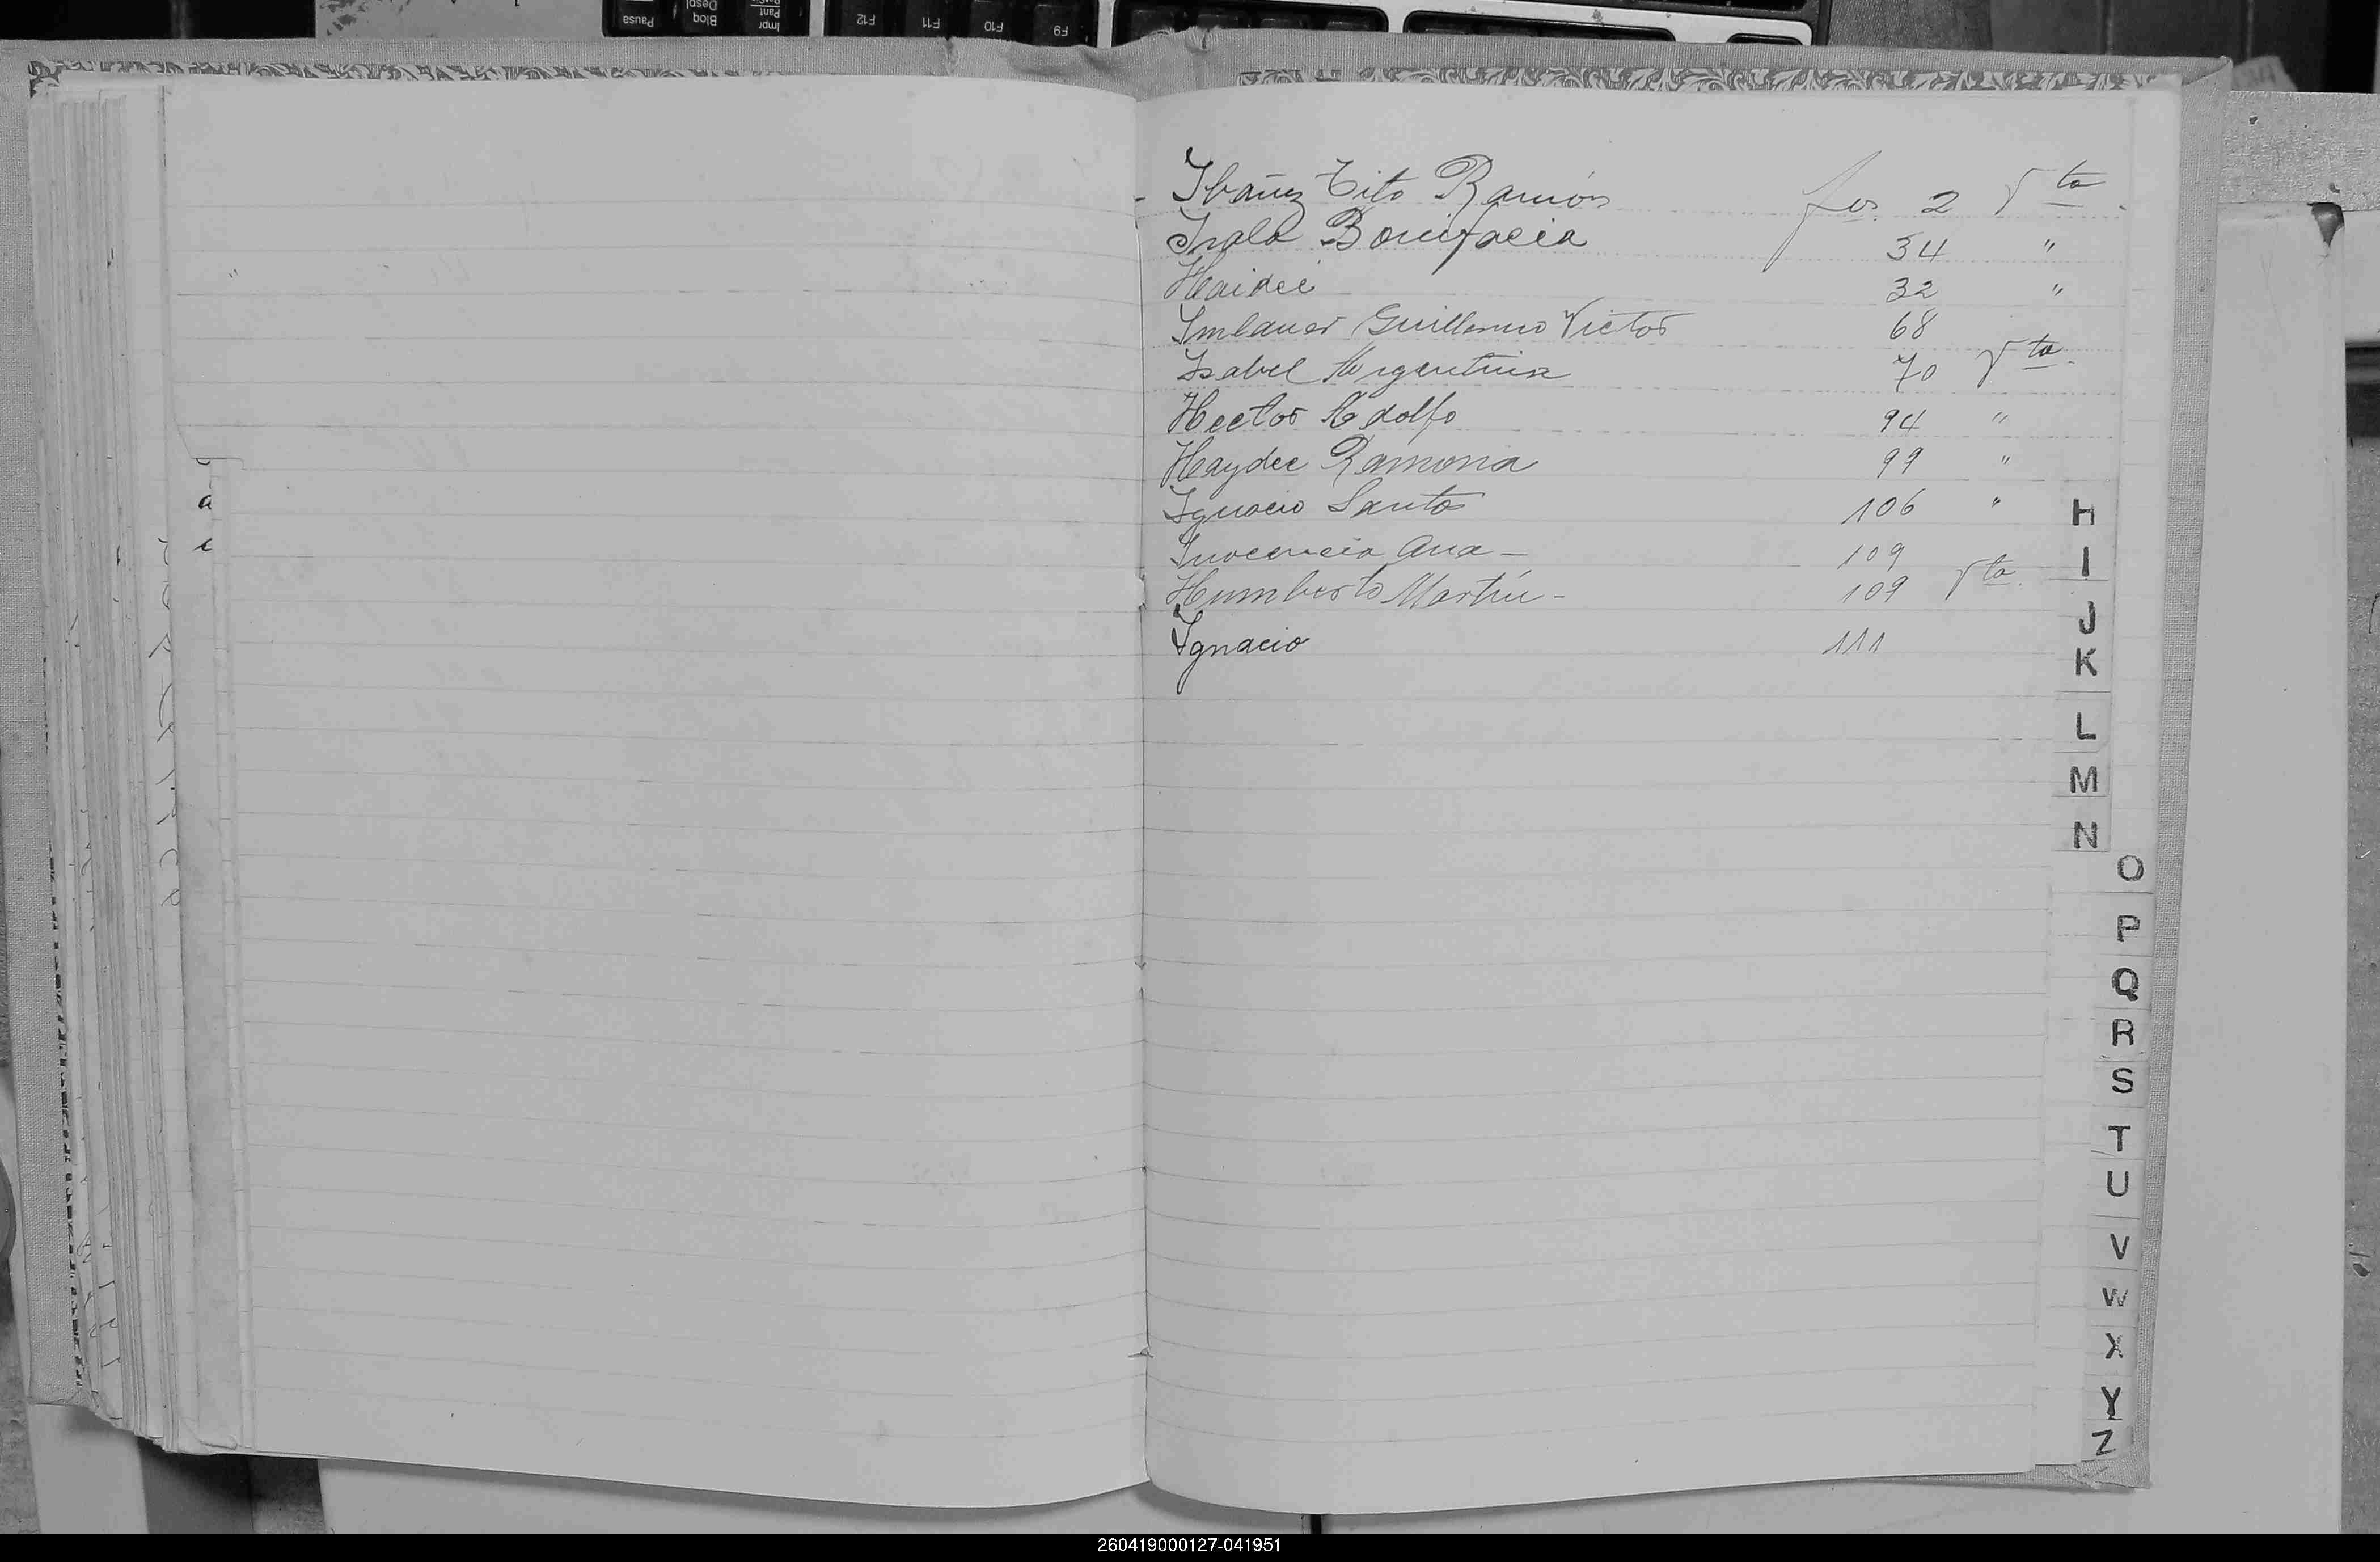 Ibáñez Tito Ramón fos. 2 Vta.
Irala Bonifacia 34 "
Haideé 32 "
Imlauer Guillermo Victor 68
Isabel Argentina 70 Vta.
Hector Adolfo 94 "
Haydee Ramona 99 "
Ignacio Santos 106 "
Inocencia Ana - 109
Humberto Martín - 109 Vta.
Ignacio 111
H
I
J
K
L
M
N
O
P
Q
R
S
T
U
V
W
X
Y
Z
Pausa
Bloq Despl
Impr Pant
F12
F11
F10
F9
260419000127-041951